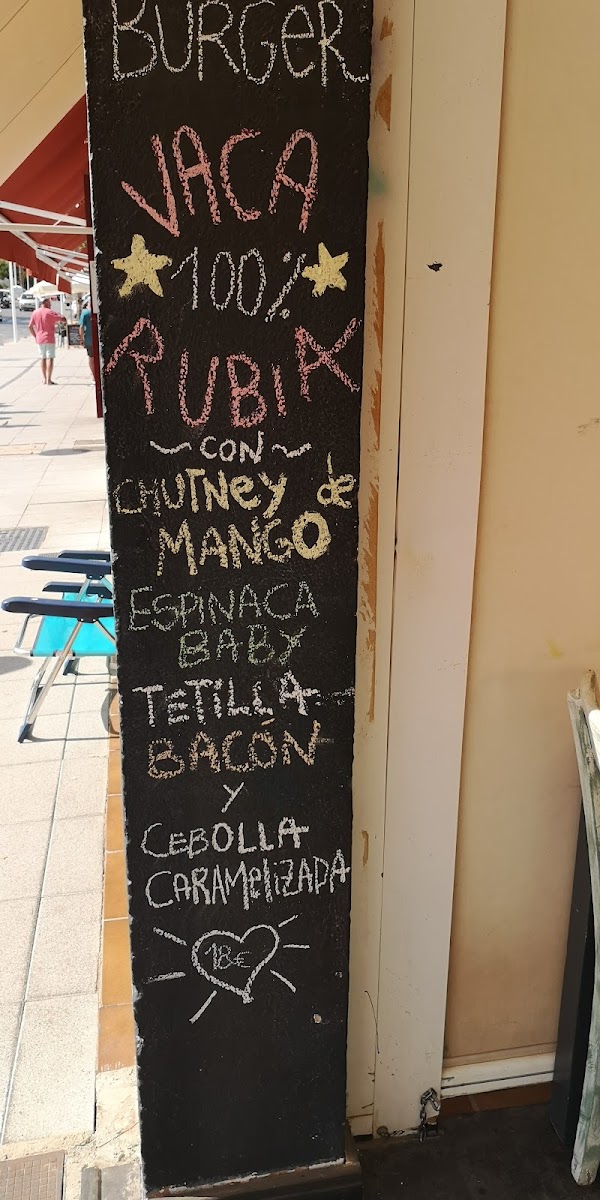 BURGER
VACA
100%
RUBIA
~CON~
CHUTNEY de
MANGO
ESPINACA
BABY
TETILLA
BACÓN
Y
CEBOLLA
CARAMELIZADA
18€